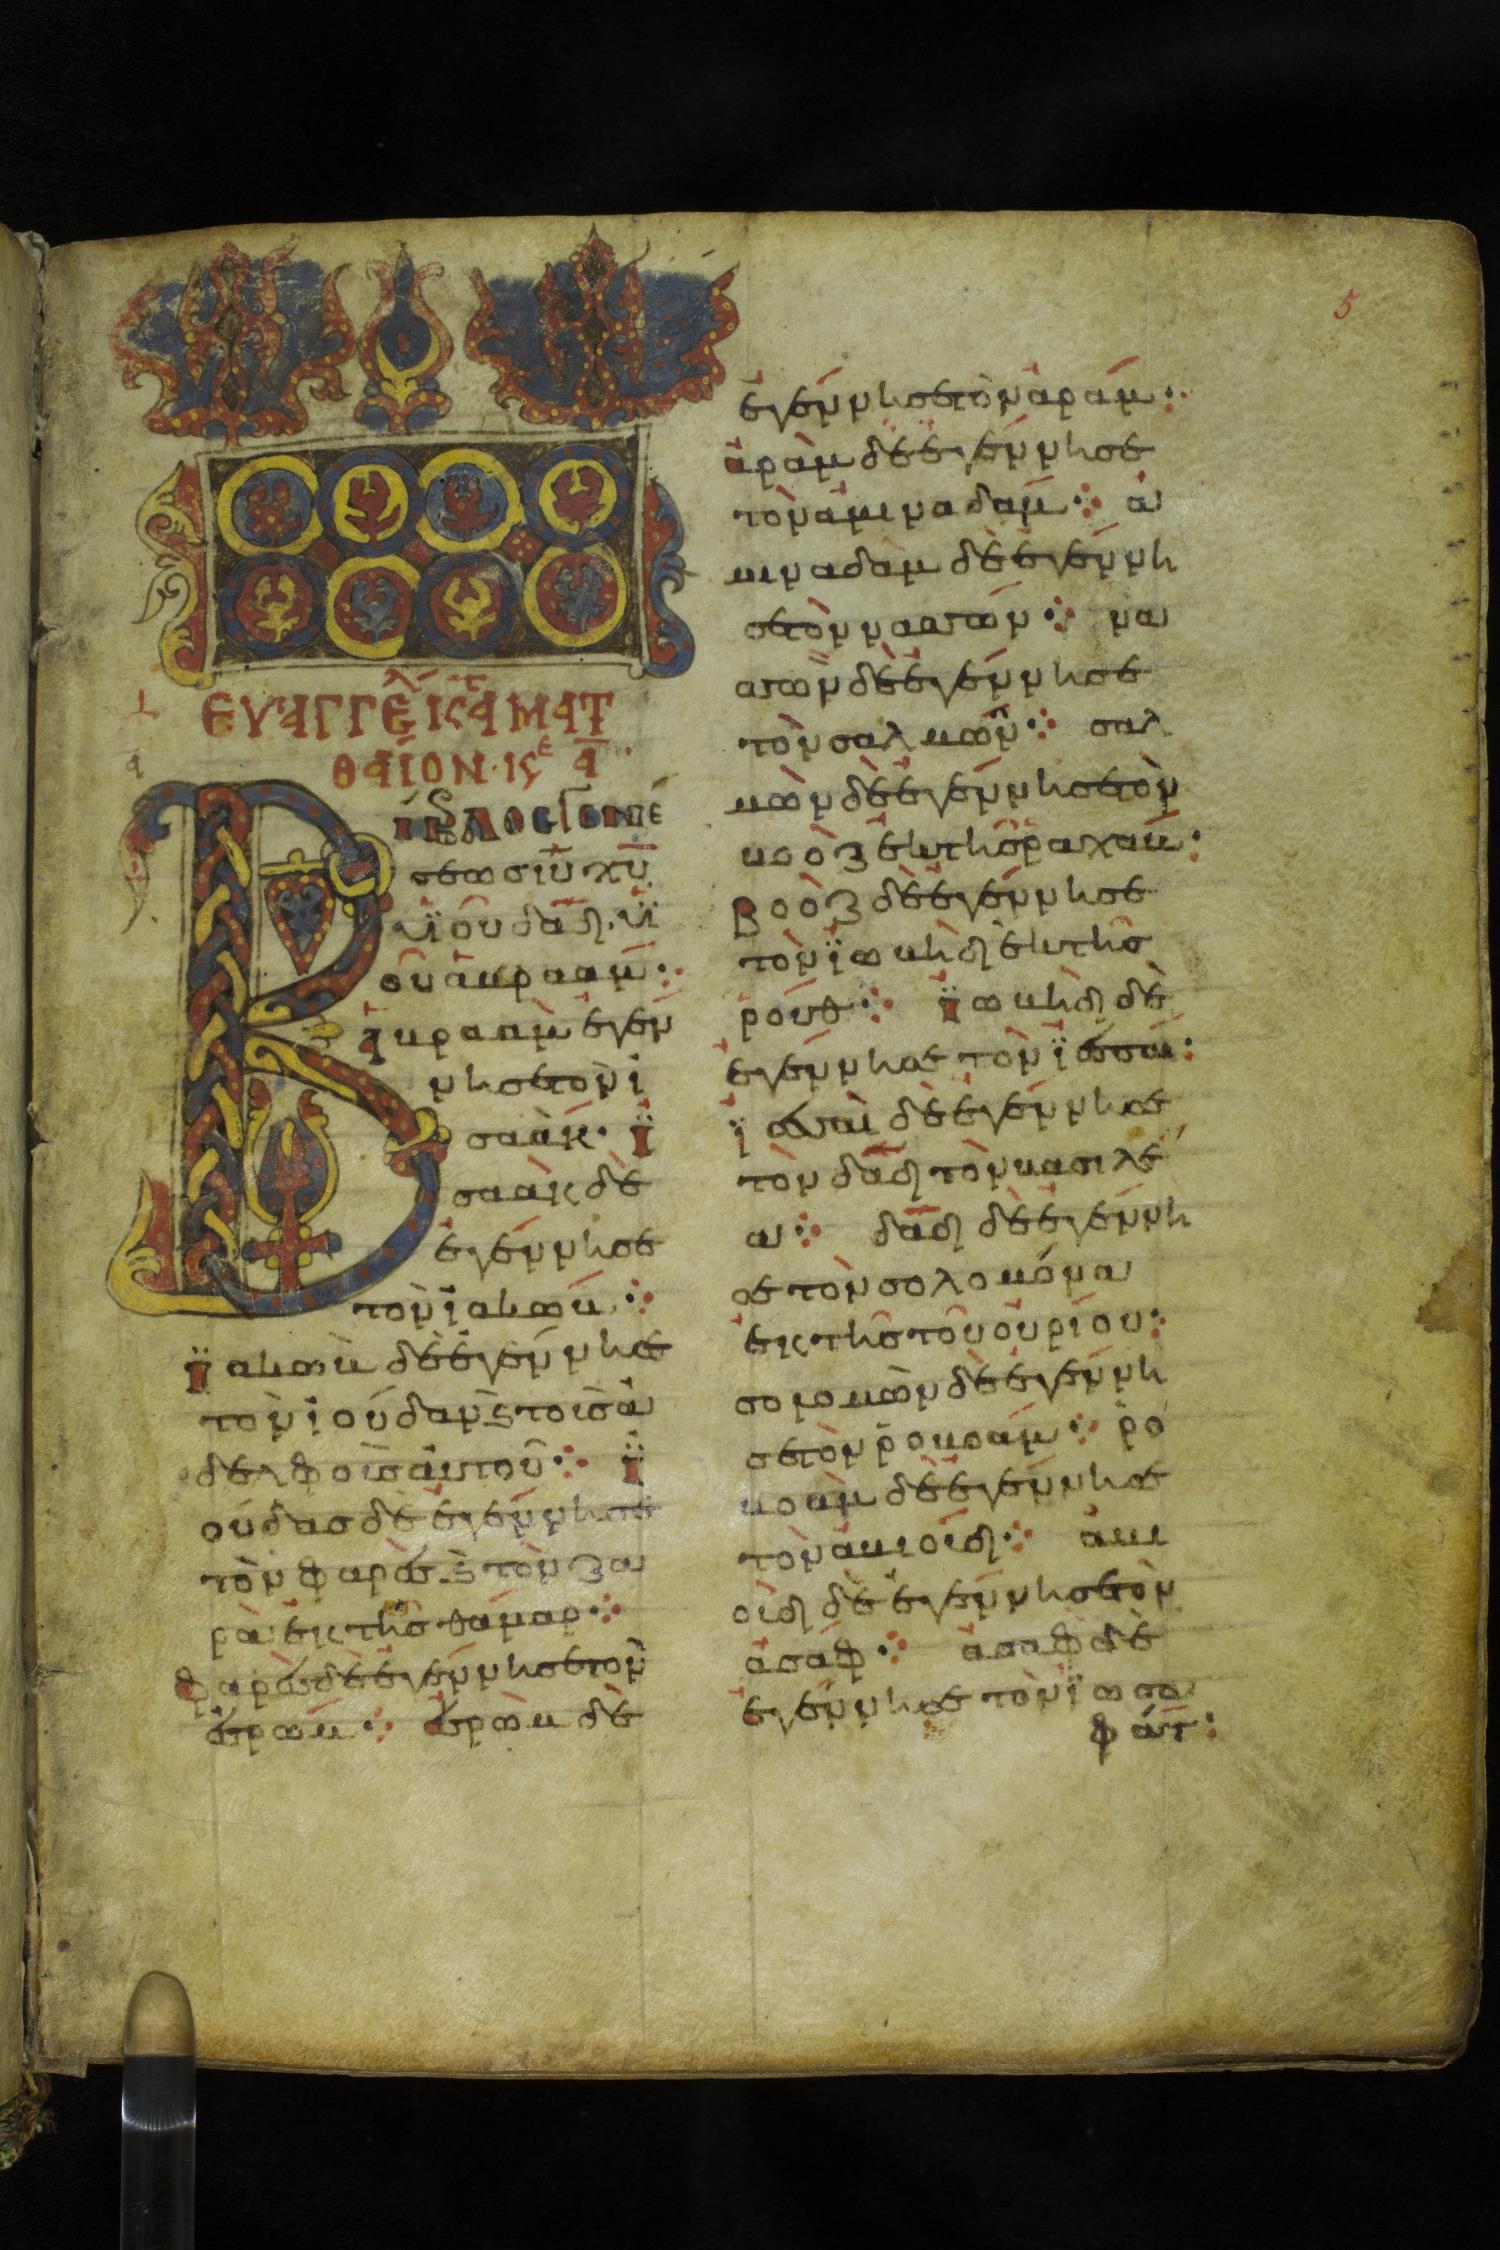 5
ΕΥΑΓΓΕΛ ΙϹ ΤΑ ΜΑΤ
ΘΑΙΟΝ · ΙϹ Ε Α
α
Βίβλος γενέ
σεως ιῡ χῡ
υἱοῦ δᾱδ · υἱ
οῦ ἀβραάμ :·
ἀβραὰμ ἐγέν
νησε τὸν ἰ
σαάκ · ϊ
σαὰκ δὲ
ἐγέννησε
τὸν ἰακώβ :·
ϊακὼβ δὲ ἐγέννησε
τὸν ἰούδαν ϗ τοὺσ ἀ
δελφοὺσ αὐτοῦ :· ϊ
ούδασ δὲ ἐγέννησε
τὸν φαρὲσ ϗ τὸν ζα
ρὰ ἐκ τῆσ θάμαρ :·
φαρὲσ δὲ ἐγέννησε τὸν
ἐσρώμ :· ἐσρὼμ δὲ
ἐγέννησε τὸν ἀράμ :·
ἀρὰμ δὲ ἐγέννησε
τὸν ἀμιναδάμ :· ἀ
μιναδὰμ δὲ ἐγέννη
σε τὸν ναασών :· να
ασὼν δὲ ἐγέννησε
τὸν σαλμών :· σαλ
μὼν δὲ ἐγέννησε τὸν
βοὸζ ἐκ τῆσ ῥαχάβ :
βοὸζ δὲ ἐγέννησε
τὸν ϊωβὴδ ἐκ τῆσ
ῥούθ :· ϊωβὴδ δὲ
ἐγέννησε τὸν ϊεσσαί :
ϊεσσαὶ δὲ ἐγέννησε
τὸν δᾱδ τὸν βασιλέ
α :· δᾱδ δὲ ἐγέννη
σε τὸν σολομόνα
ἐκ τῆσ τοῦ οὐρίου :
σολομὼν δὲ ἐγέννη
σε τὸν ῥοβοάμ :· ῥο
βοὰμ δὲ ἐγέννησε
τὸν ἀβιούδ :· ἀβι
οὺδ δὲ ἐγέννησε τὸν
ἀσάφ :· ἀσὰφ δὲ
ἐγέννησε τὸν ϊωσα
φάτ :